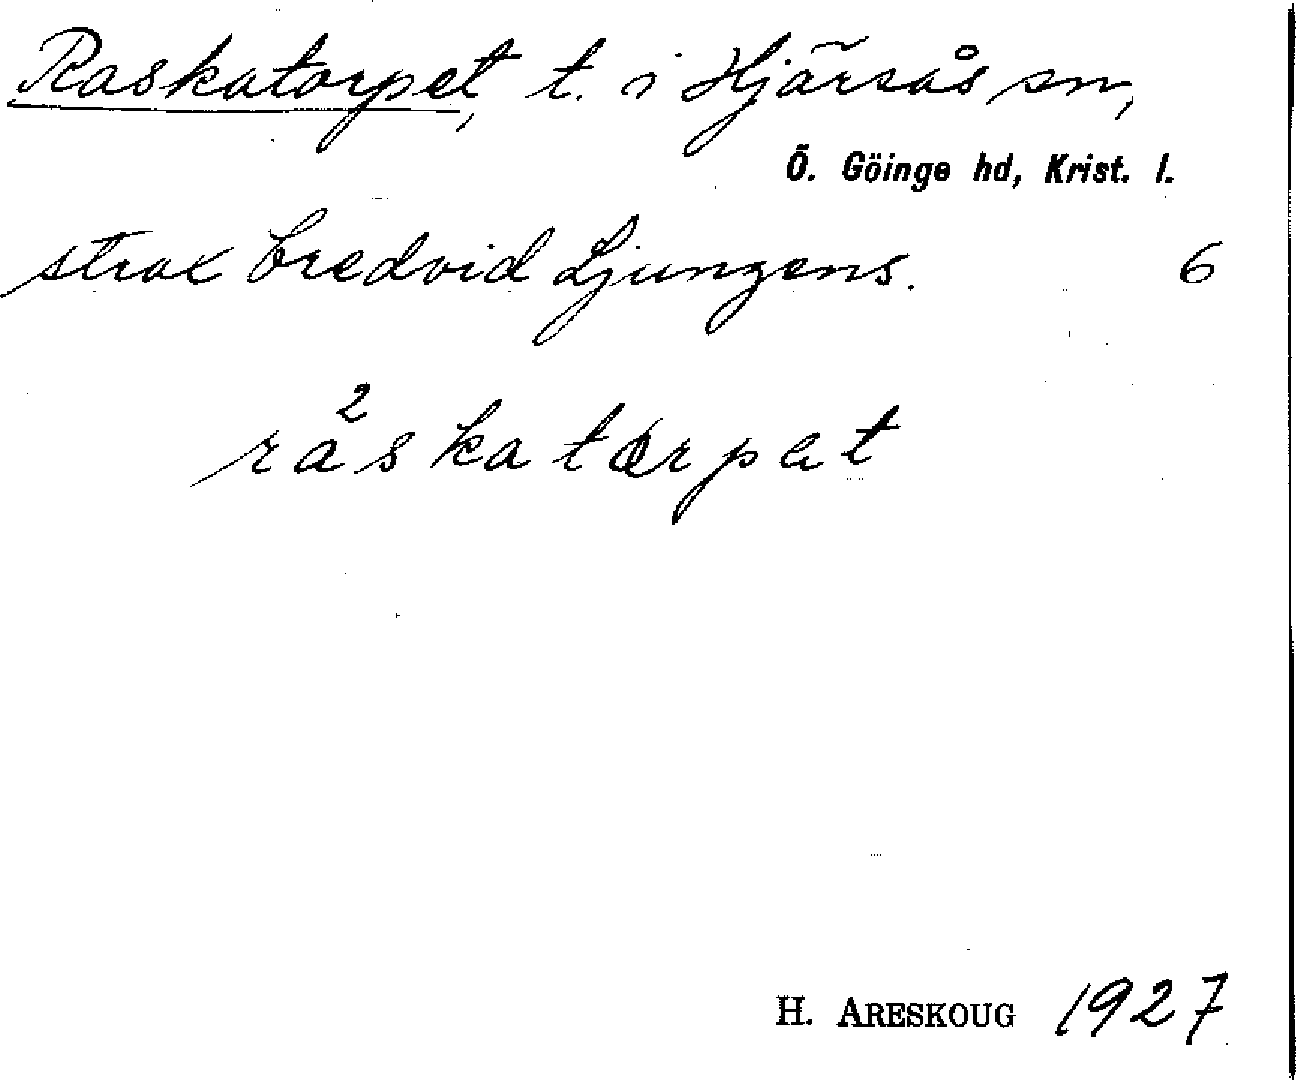 Raskatorpet, t. i Hjärsås sn,
Ö. Göinge hd, Krist. l.
strax bredvid Ljungens. 6
ra²skatɔrpat
H. ARESKOUG 1927